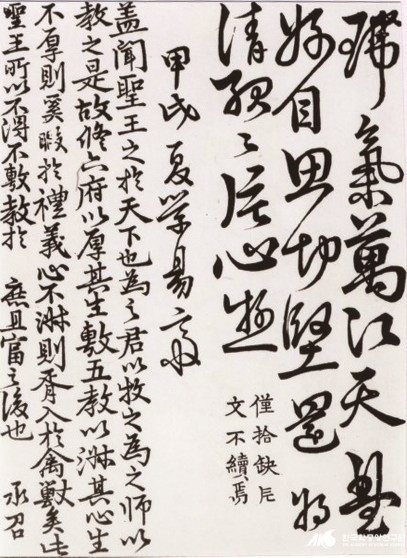 氣萬江天
好自思切堅還將
清心
僅拾缺片
文不續焉
甲戌夏学易
盖闻聖王之於天下也為之君以牧之為之师以
教之是故修六府以厚其生敷五教以淋其心生
不厚則奚暇於禮義心不淋則胥入於禽獸矣此
聖王所以不得不敷教於 庶且富之後也 承召
한국학중앙연구원